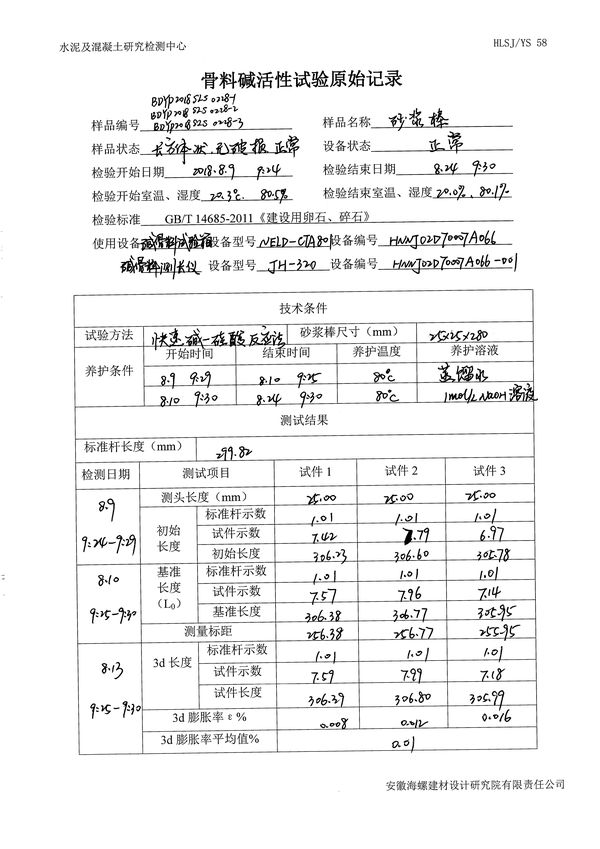 水泥及混凝土研究检测中心 HLSJ/YS 58
骨料碱活性试验原始记录
BDYP2018SZS0228-1
BDYP2018SZS0228-2
样品编号 BDYP2018SZS0228-3 样品名称 砂浆棒
样品状态 长方体状,无破损 正常 设备状态 正常
检验开始日期 2018.8.9 9:24 检验结束日期 8.24 9:30
检验开始室温、湿度 20.3℃. 80.5% 检验结束室温、湿度 20.0%. 80.1%
检验标准 GB/T 14685-2011《建设用卵石、碎石》
使用设备 碱骨料试验箱 设备型号 NELD-CTA801 设备编号 HNNJ02D7007A066
碱骨料测长仪 设备型号 JH-320 设备编号 HNNJ02D7007A066-001
技术条件
试验方法 快速碱-硅酸反应法 砂浆棒尺寸(mm) 25x25x280
养护条件 开始时间 结束时间 养护温度 养护溶液
8.9 9:29 8.10 9:25 80℃ 蒸馏水
8.10 9:30 8.24 9:30 80℃ 1mol/L NaOH溶液
测试结果
标准杆长度(mm) 299.82
检测日期 测试项目 试件1 试件2 试件3
8.9 9:24-9:29 测头长度(mm) 25.00 25.00 25.00
初始长度 标准杆示数 1.01 1.01 1.01
试件示数 7.42 7.79 6.97
初始长度 306.23 306.60 305.78
8.10 9:25-9:30 基准长度(L₀) 标准杆示数 1.01 1.01 1.01
试件示数 7.57 7.96 7.14
基准长度 306.38 306.77 305.95
测量标距 256.38 256.77 255.95
8.13 9:25-9:30 3d 长度 标准杆示数 1.01 1.01 1.01
试件示数 7.59 7.99 7.18
试件长度 306.39 306.80 305.99
3d 膨胀率 ε% 0.008 0.012 0.016
3d 膨胀率平均值% 0.01
安徽海螺建材设计研究院有限责任公司